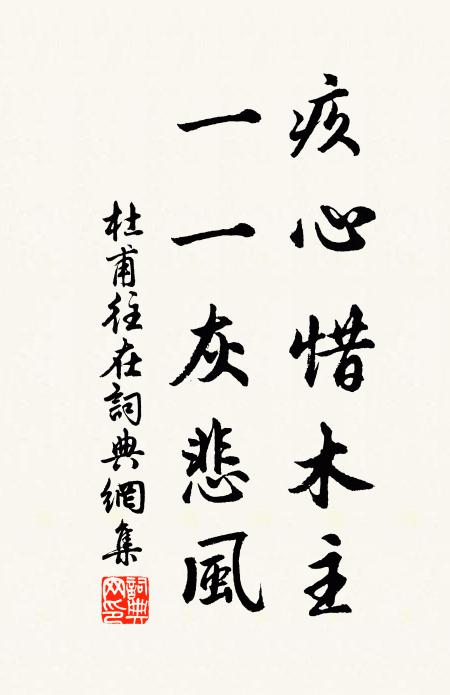 疚心惜木主
一一灰悲風
杜甫往在詞典網集
詞典网印